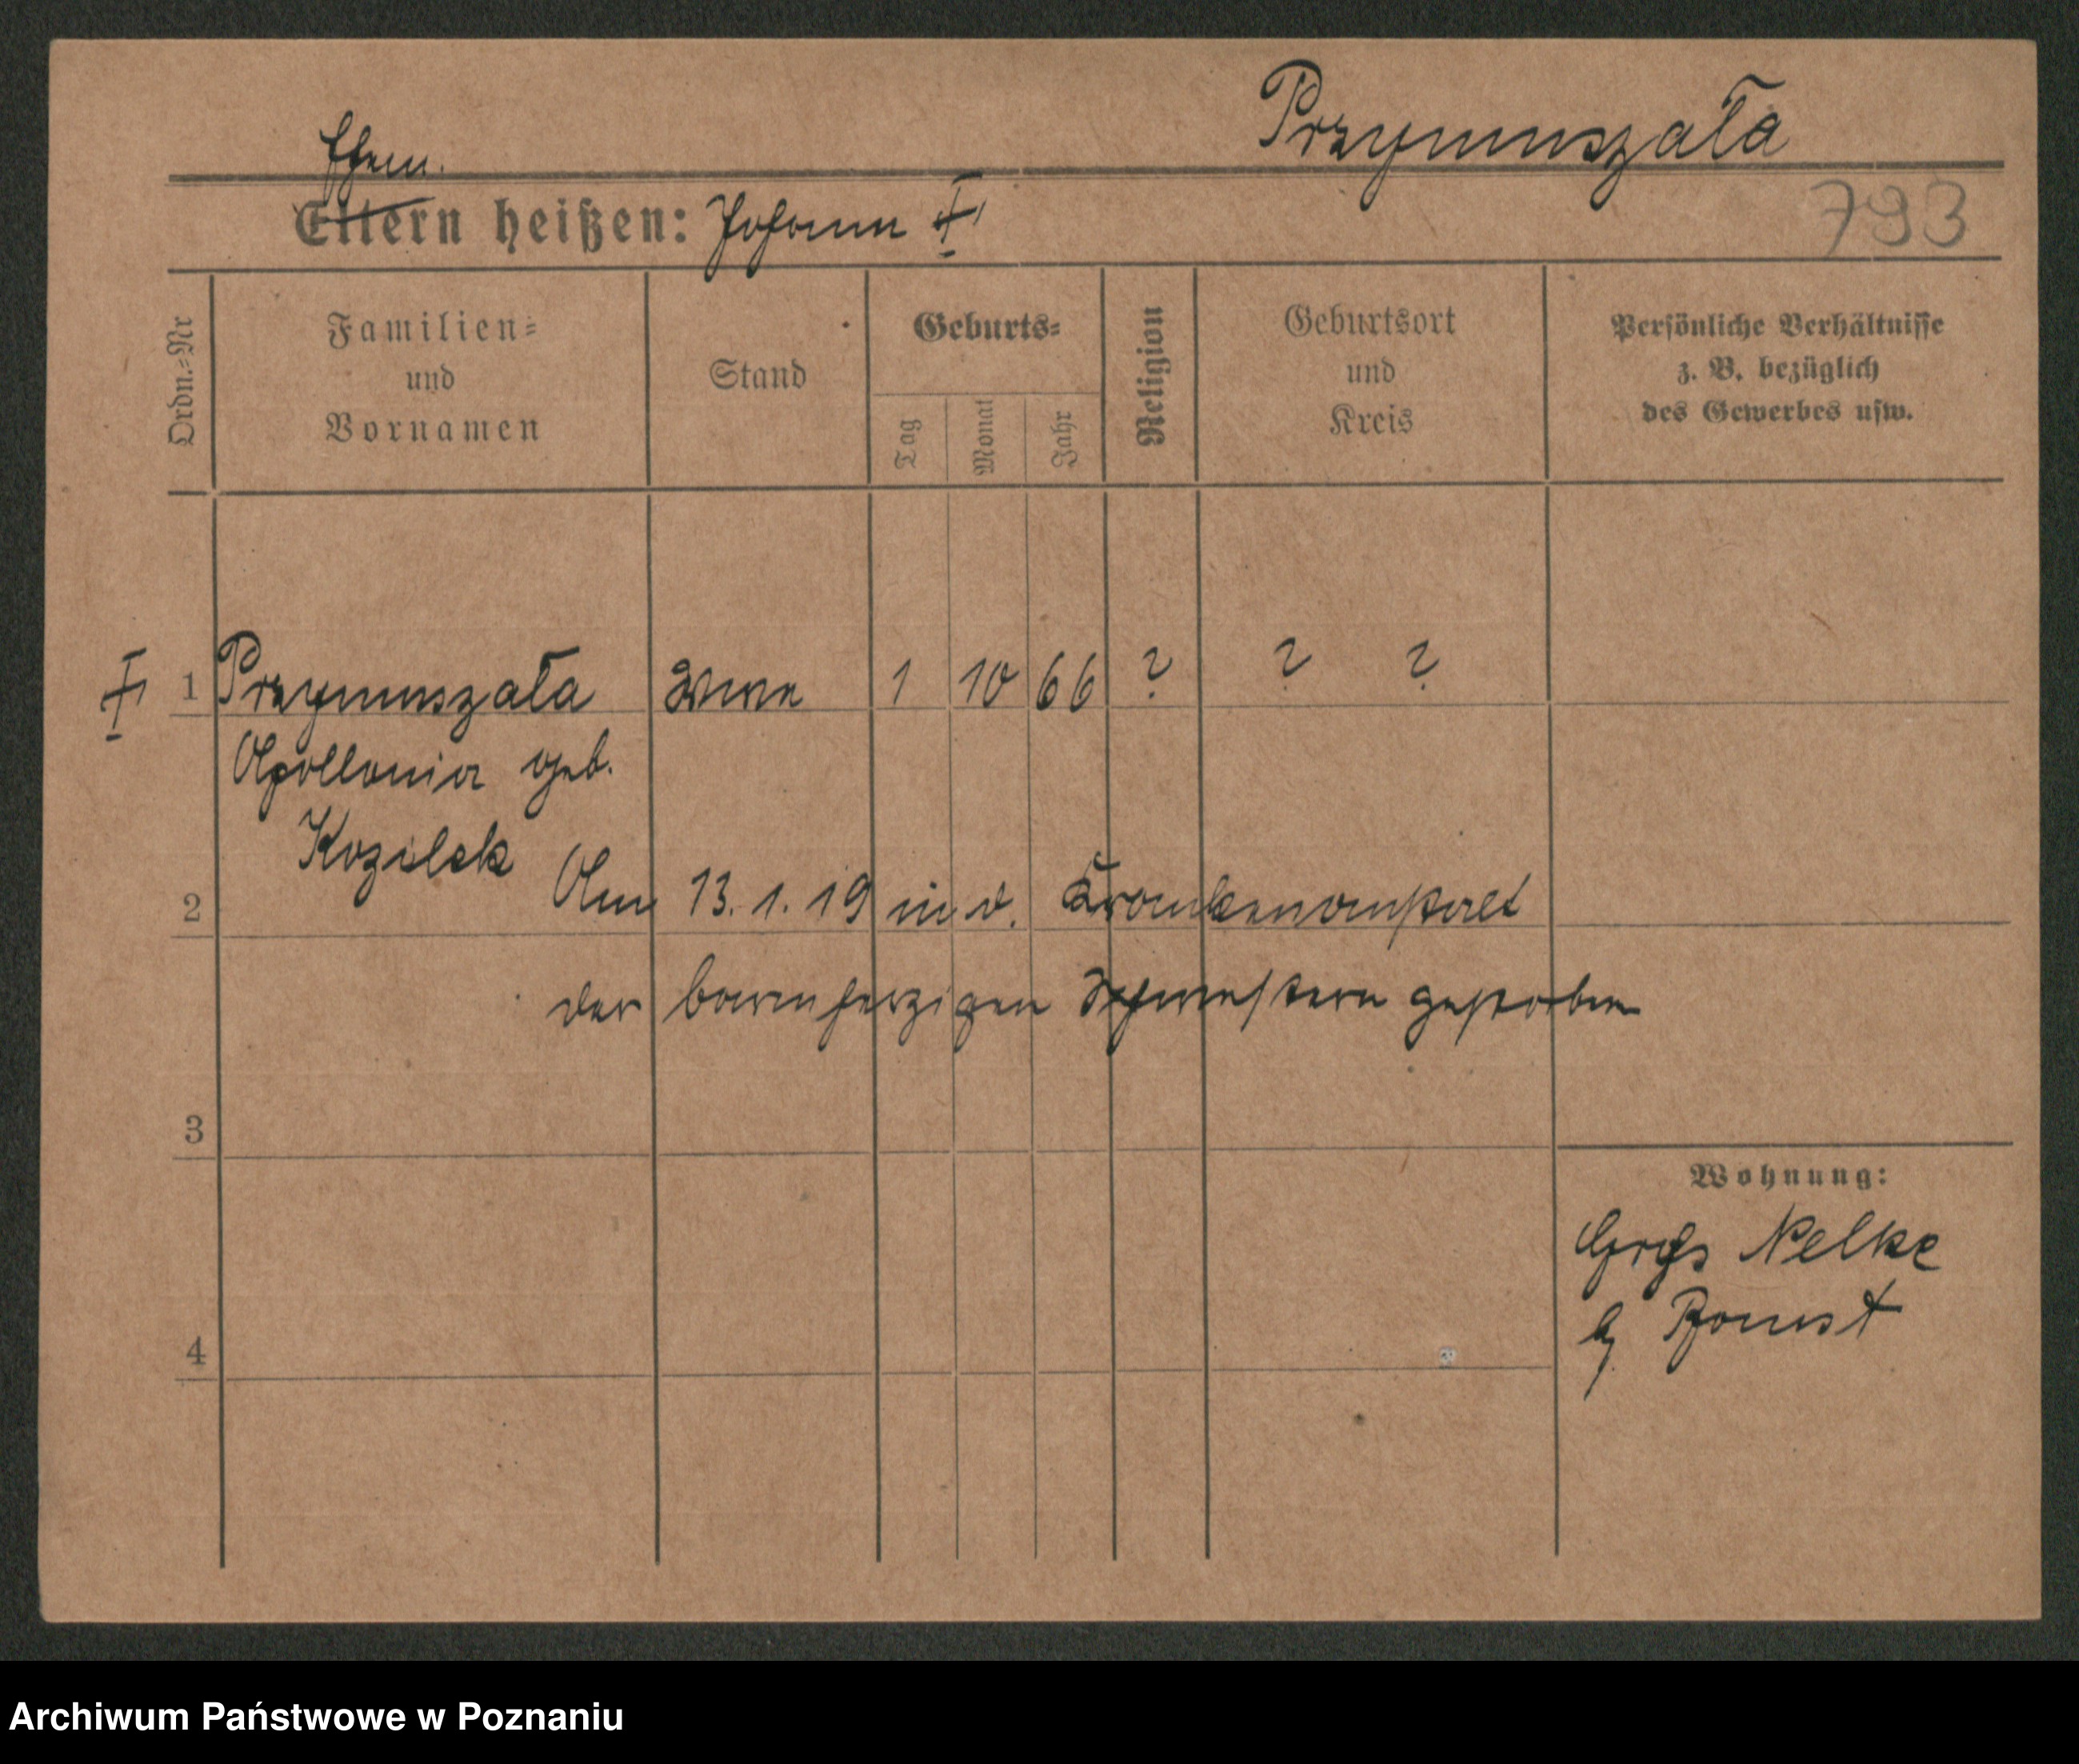 Przymuszała
Ehem.
Eltern heißen: Johann †
793
Ordn.=Nr
Familien=
und
Vornamen
Stand
Geburts=
Tag
Monat
Jahr
Religion
Geburtsort
und
Kreis
Persönliche Verhältnisse
z. B. bezüglich
des Gewerbes usw.
† 1 Przymuszała Wwe 1 10 66 ? ? ?
Apollonia geb.
Kozilek
2 Am 13.1.19 in d. Krankenanstalt
der barmherzigen Schwestern gestorben
3
Wohnung:
Groß Nelke
Bomst
4
Archiwum Państwowe w Poznaniu